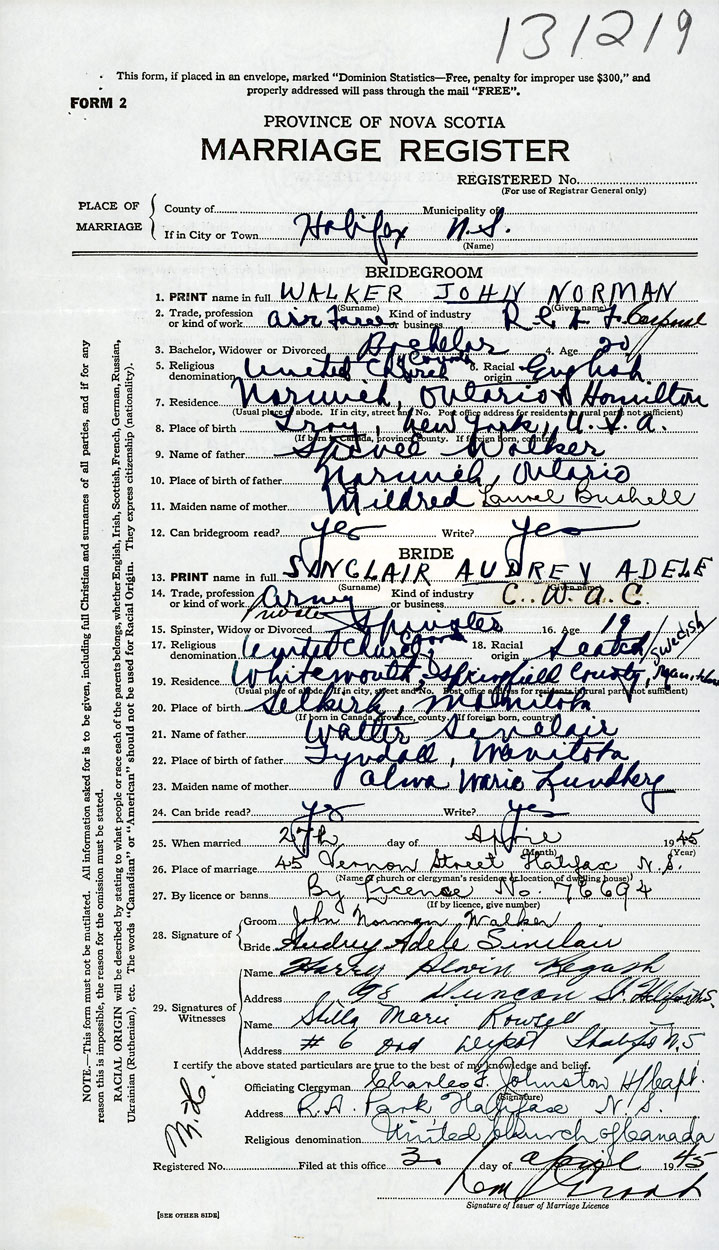 131219
This form, if placed in an envelope, marked "Dominion Statistics—Free, penalty for improper use $300," and
properly addressed will pass through the mail "FREE".
FORM 2
PROVINCE OF NOVA SCOTIA
MARRIAGE REGISTER
REGISTERED No.
(For use of Registrar General only)
PLACE OF MARRIAGE
County of Municipality of
If in City or Town Halifax N.S.
(Name)
BRIDEGROOM
1. PRINT name in full WALKER JOHN NORMAN
(Surname) (Given name)
2. Trade, profession or kind of work Air Force Kind of industry or business R.C.A.F. Corporal
3. Bachelor, Widower or Divorced Bachelor 4. Age 20
5. Religious denomination United Church 6. Racial origin English
7. Residence Norwich, Ontario Hamilton
(Usual place of abode. If in city, street and No. Post office address for residents in rural parts not sufficient)
8. Place of birth Troy, New York, U.S.A.
(If born in Canada, province, county. If foreign born, country)
9. Name of father Walker
10. Place of birth of father Norwich, Ontario
11. Maiden name of mother Mildred Laurel Bushell
12. Can bridegroom read? yes Write? yes
BRIDE
13. PRINT name in full SINCLAIR AUDREY ADELE
(Surname) (Given name)
14. Trade, profession or kind of work Army Private Kind of industry or business C.W.A.C.
15. Spinster, Widow or Divorced Spinster 16. Age 19
17. Religious denomination United Church Canada 18. Racial origin Scotch/Swedish
19. Residence Whitemouth, Springhill County, Manitoba
(Usual place of abode. If in city, street and No. Post office address for residents in rural parts not sufficient)
20. Place of birth Selkirk, Manitoba
(If born in Canada, province, county. If foreign born, country)
21. Name of father Walter Sinclair
22. Place of birth of father Tyndall, Manitoba
23. Maiden name of mother Alma Marie Lundberg
24. Can bride read? yes Write? yes
25. When married 27th day of April 1945
(Month) (Year)
26. Place of marriage 45 Vernon Street Halifax N.S.
(Name of church or clergyman's residence or location of dwelling house)
27. By licence or banns By Licence No. 76694
(If by licence, give number)
28. Signature of
Groom John Norman Walker
Bride Audrey Adele Sinclair
29. Signatures of Witnesses
Name Harry
Address 98 Duncan St. Halifax N.S.
Name Stella Marie Rowsell
Address # 6 Ord Depot Halifax N.S
I certify the above stated particulars are true to the best of my knowledge and belief.
Officiating Clergyman Charles F. Johnston H/Capt.
(Signature)
Address R.A. Park Halifax N.S.
Religious denomination United Church of Canada
Registered No. Filed at this office 30 day of April 1945
Signature of Issuer of Marriage Licence
[SEE OTHER SIDE]
NOTE.—This form must not be mutilated. All information asked for is to be given, including full Christian and surnames of all parties, and if for any
reason this is impossible, the reason for the omission must be stated.
RACIAL ORIGIN will be described by stating to what people or race each of the parents belongs, whether English, Irish, Scottish, French, German, Russian,
Ukrainian (Ruthenian), etc. The words "Canadian" or "American" should not be used for Racial Origin. They express citizenship (nationality).